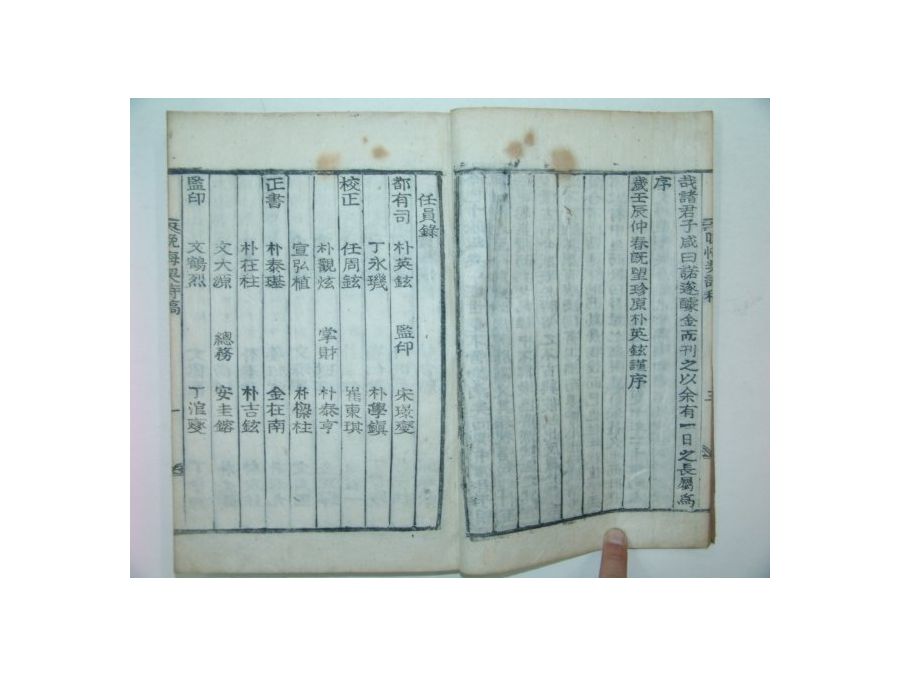 哉諸君子咸曰諾遂醵金而刊之以余有一日之長屬爲
序
歲壬辰仲春旣望珍原朴英鉉謹序
任員錄
都有司 朴英鉉 監印 宋璟燮
丁永璣 朴學鎭
校正 任周鉉 崔東琪
朴觀炫 掌財 朴泰亨
宣弘植 朴燦柱
正書 朴泰瑾 金在南
朴在柱 朴吉鉉
文大源 總務 安圭鎔
監印 文鶴烈 丁渲燮
晩悔集詩稿 一